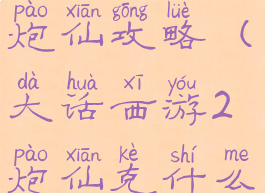 pào xiān gōng lüè
炮仙攻略（
dà huà xī yóu
大话西游2
pào xiān kè shí me
炮仙克什么